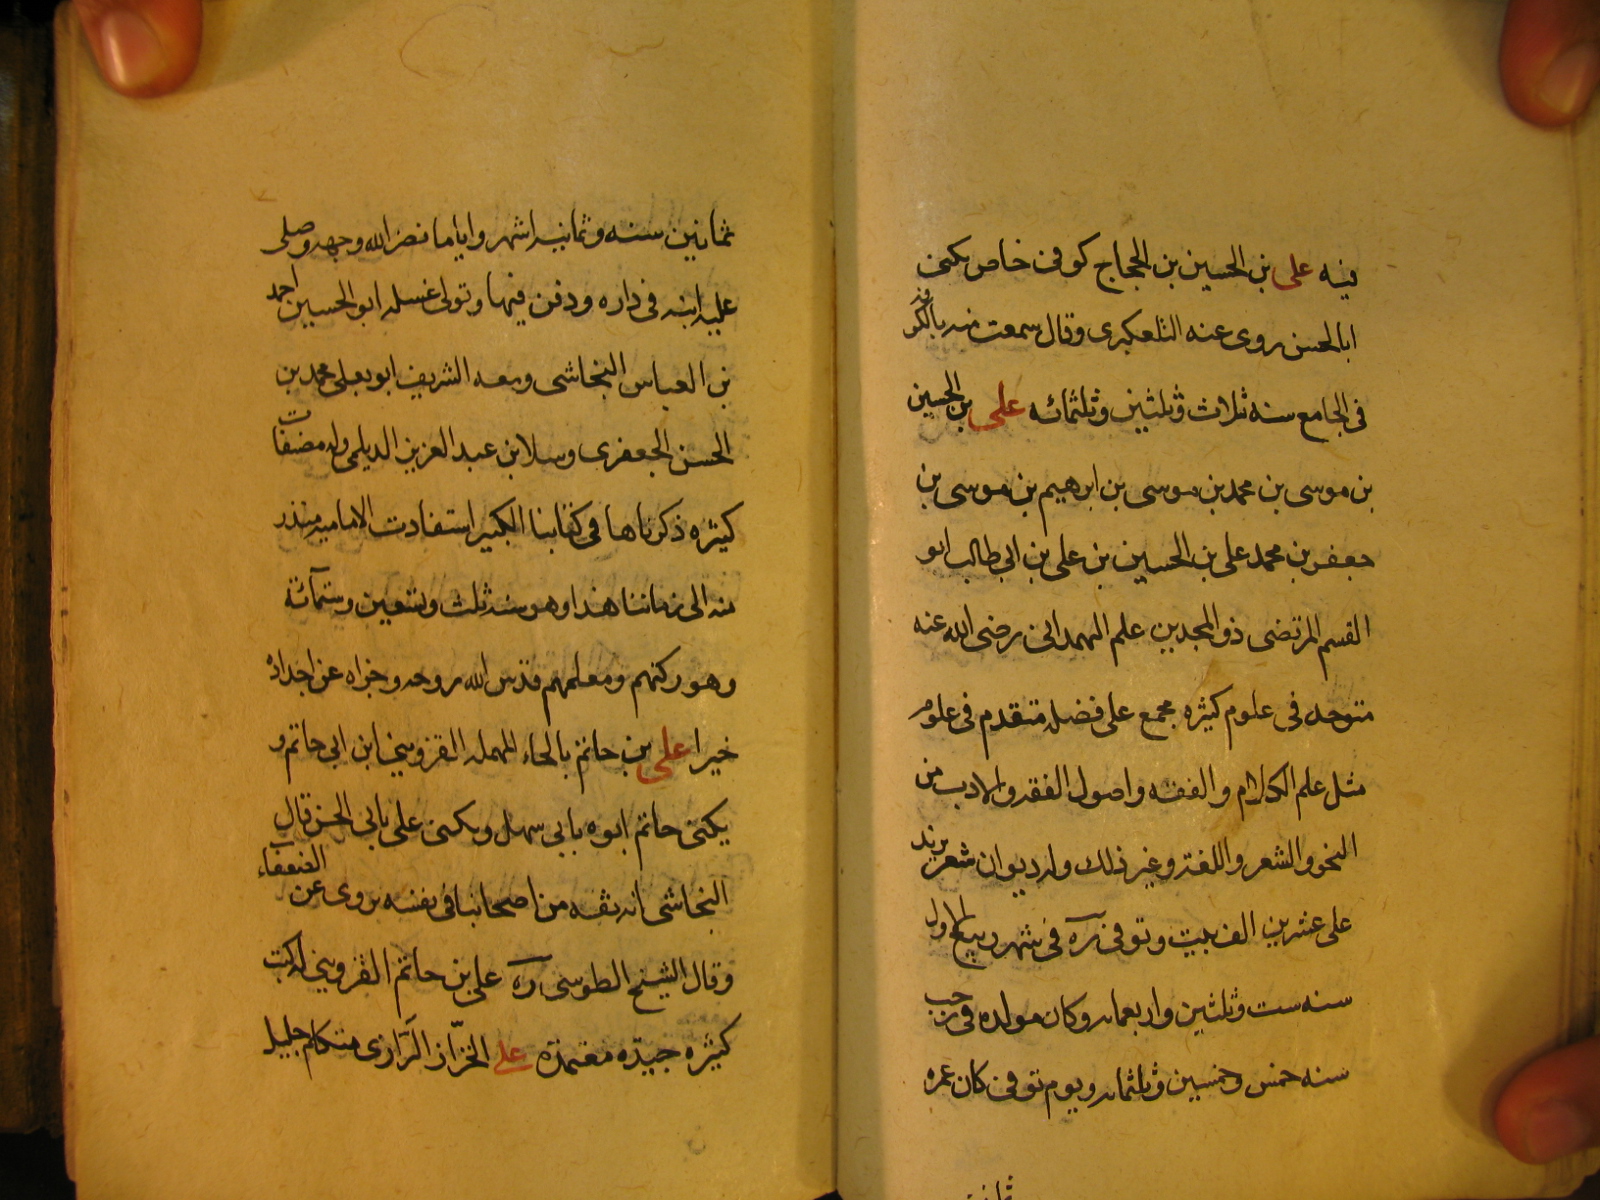 فيه علي بن الحسين بن الحجاج كوفى خاص يكنى
ابا الحسن روى عنه التلعكبرى وقال سمعت منه بالكوفه
فى الجامع سنه ثلاث وثلثين وثلثمائه على بن الحسين
بن موسى بن محمد بن موسى بن ابرهيم بن موسى بن
جعفر بن محمد على بن الحسين بن على بن ابى طالب ابو
القسم المرتضى ذو المجدين علم الهدى رضى الله عنه
متوحد فى علوم كثيره مجمع على فضله متقدم فى علوم
مثل علم الكلام والفقه واصول الفقه والادب من
النحو والشعر واللغة وغير ذلك وله ديوان شعر يزيد
على عشرين الف بيت وتوفى ره فى شهر ربيع الاول
سنه ست وثلثين واربعمايه وكان مولده فى رجب
سنه خمس وخمسين وثلثمايه ويوم توفى كان عمره
ثمانين سنه وثمانيه اشهر واياما نضر الله وجهه وصلى
عليه ابنه فى داره ودفن فيها وتولى غسله ابو الحسين احمد
بن العباس النجاشى ومعه الشريف ابو يعلى محمد بن
الحسن الجعفرى وسلار بن عبد العزيز الديلمى وله مصنفات
كثيره ذكرناها فى كتابنا الكبير استفادت الاماميه منذ
منه الى زماننا هذا وهو سنه ثلث وتسعين وستمائة
وهو ركنهم ومعلمهم قدس الله روحه وجزاه عن اجداده
خيرا على بن حاتم بالحاء المهمله القزوينى ابن ابى حاتم و
يكنى حاتم ابوه بابى سهل ويكنى على بابى الحسن قال
النجاشى انه ثقه من اصحابنا فى نفسه يروى عن الضعفاء
وقال الشيخ الطوسى ره على بن حاتم القزوينى له كتب
كثيره جيده معتمدة على الخزّاز الرّازى متكلم جليل